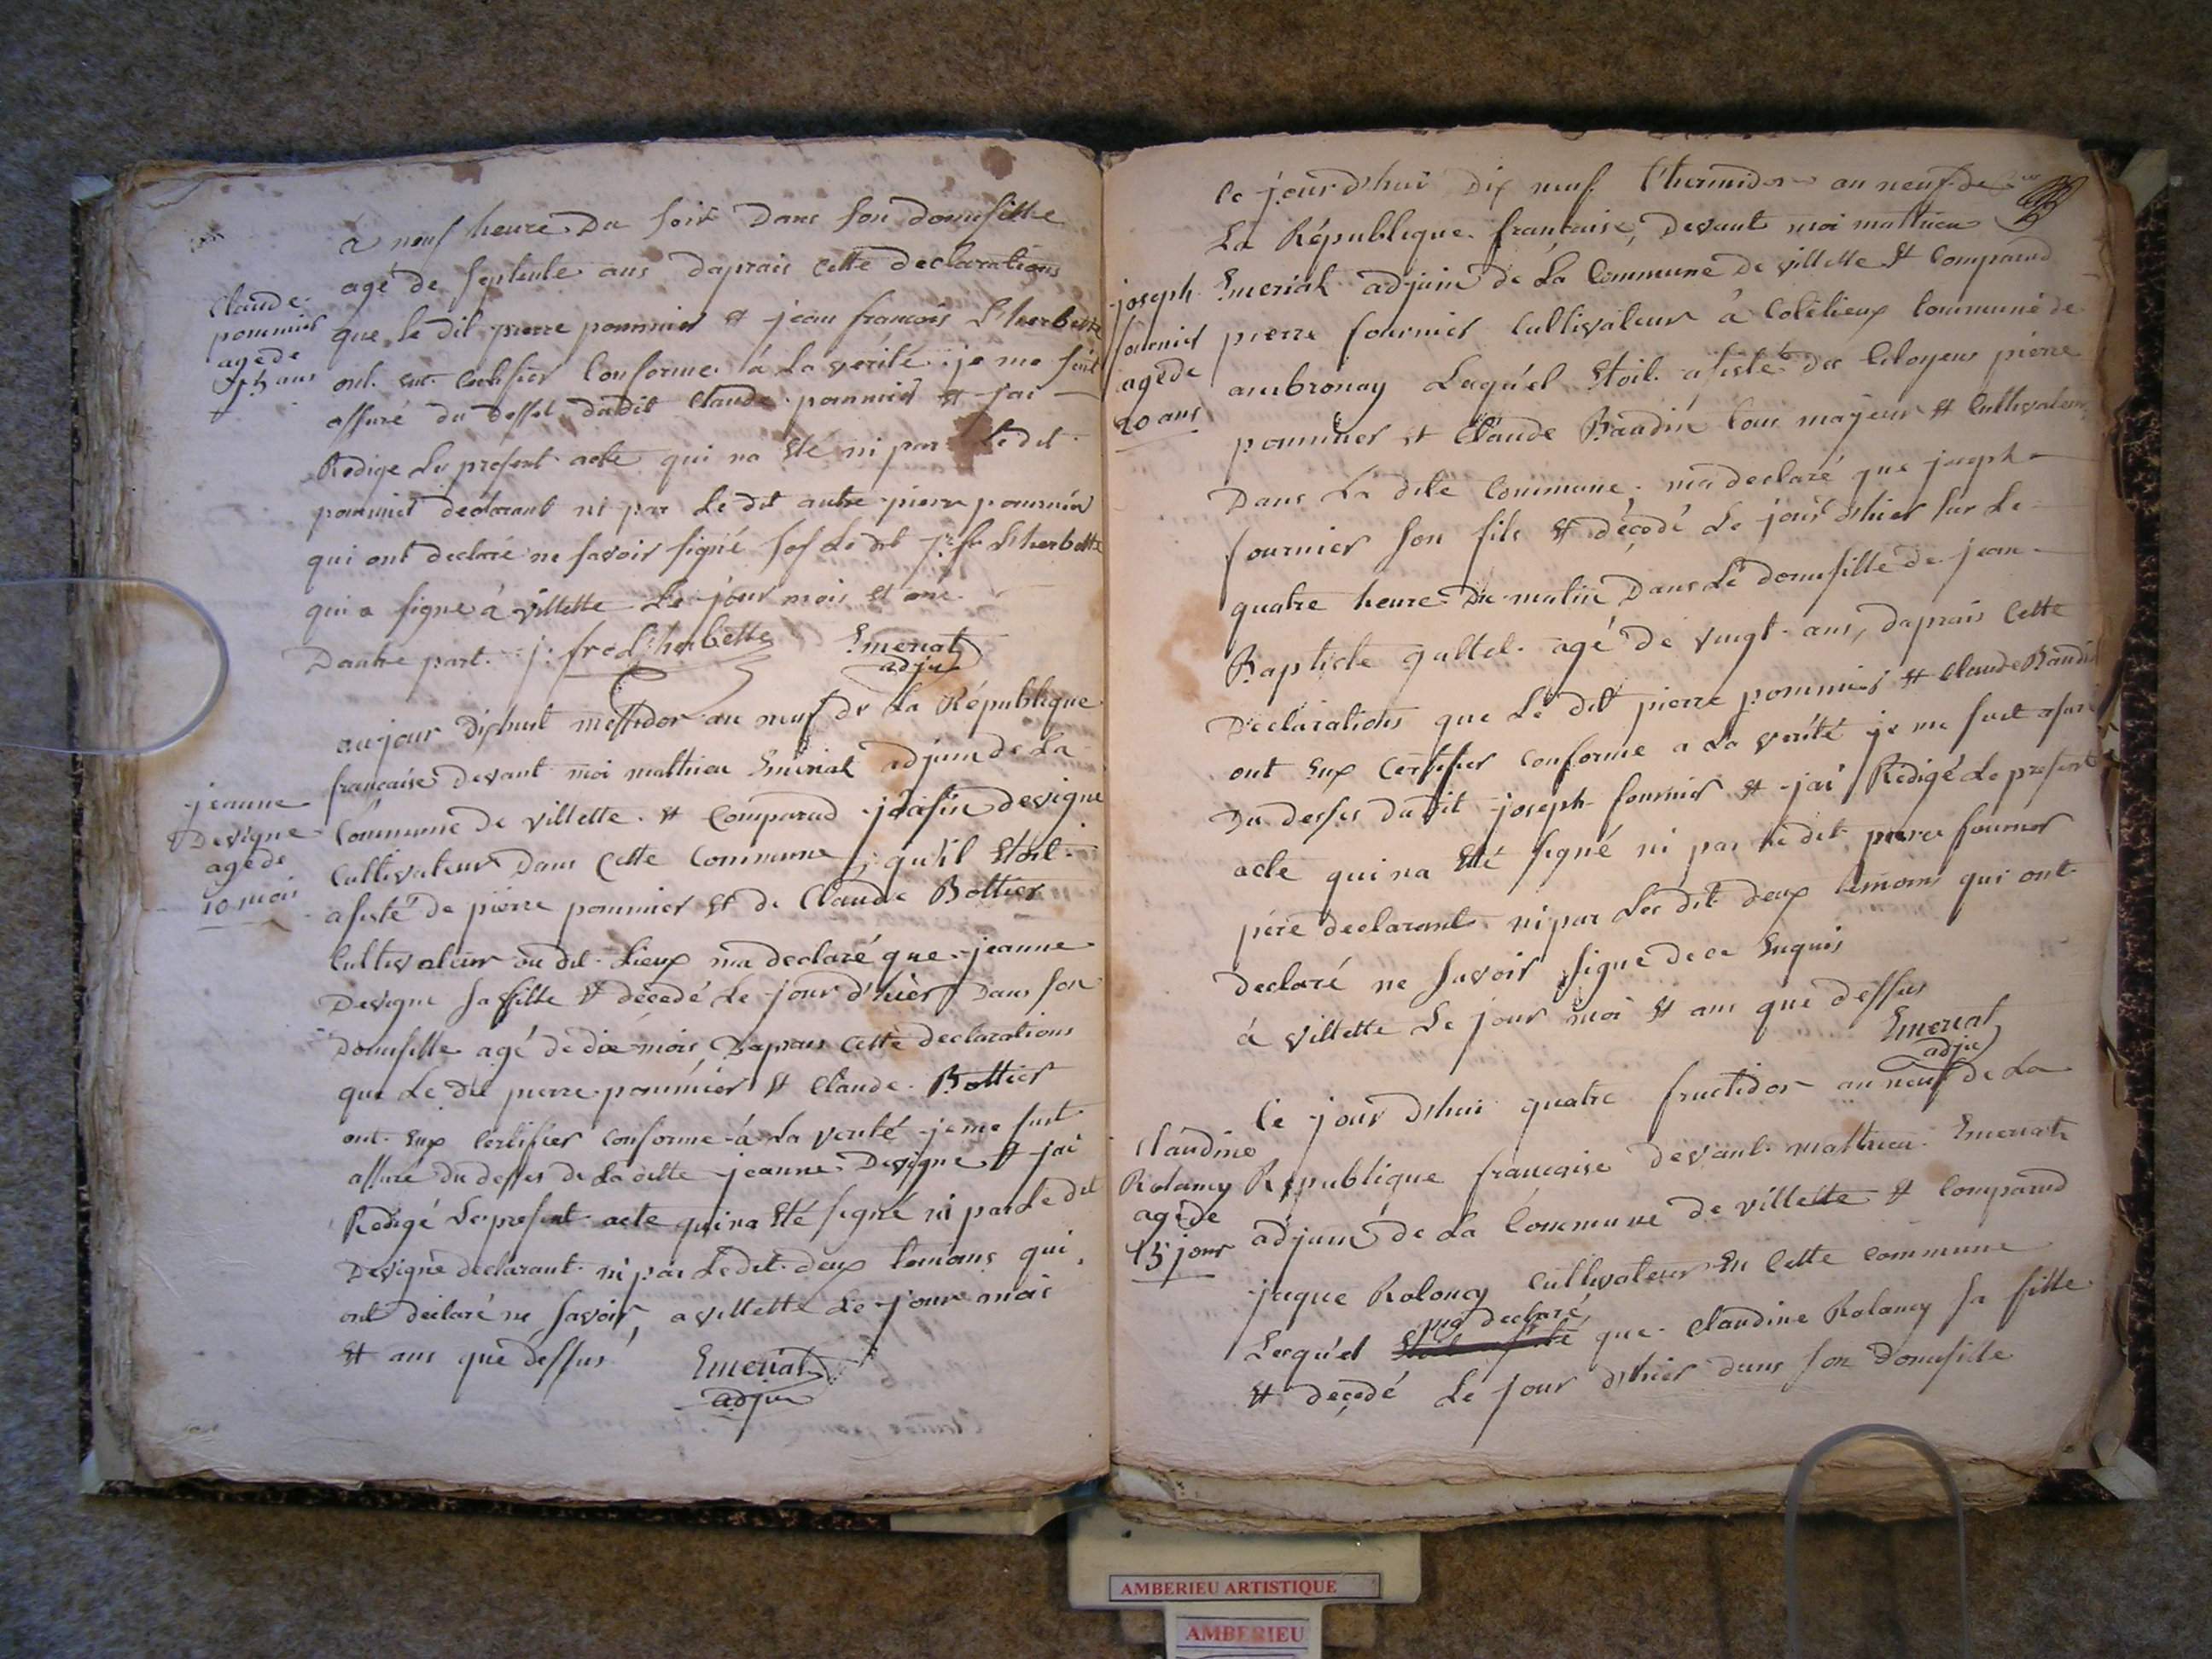 à neuf heure du soir dans son domisille
agé de septente ans daprais cette declarations
Claude
pommier
agé de
75 ans
que le dit pierre pommier et jean francois L'herbette
ont eux certifier conforme à la vérité je me suit
assuré du desses dudit Claude pommier et jai
Redige le présent acte qui na été ni par le dit
pommier declarant ni par le dit autre pierre pommier
qui ont declaré ne savoir signé sof le dit j. fr L'herbette
qui a signe à villette le jour mois et ané
Dautre part. j. fr L'herbette Emeriat
adju
aujour dishuit messidor an neuf de la République
francaise devant moi mathieu Emeriat adjuin de la
jeanne
Devigne
agé de
10 mois
Commune de villette et Comparud devigne
Cultivateur dans cette Commune, qu'il étoit
asisté de pierre pommier et de Claude Bottier
Cultivateur ou dit Lieux ma declaré que jeanne
Devigne sa fille et décedé le jour d'hier dans son
Domisille agé de dix mois Daprais cette declarations
que le dit pierre pommier et Claude Bottier
ont eux certifier conforme à la verité je me suit
assuré du desses de la ditte jeanne Devigne et jai
Redigé le present acte qui na été signé ni par le dit
Devigne declarant ni par le dit deux temoins qui
ont déclaré ne savoir, a villette le jour mois
et ans que dessus Emeriat
adju
Ce jourd'hui dix neuf thermidor an neuf de
La République francaise, devant moi mathieu
joseph
fournier
agé de
20 ans
Emeriat adjuin de la Commune de villette et Comparud
pierre fournier Cultivateur à Colélieux Commune de
ambronay Lequ'el étoit asisté des Citoyens pierre
pommier et Claude Baudin tous majeur et Cultivateur
Dans la dite Commune, ma declaré que joseph
fournier son fils et décedé le jour d'hier sur le
quatre heure du matin dans le domisille de jean
Baptiste galtel agé de vingt ans, daprais cette
Declarations que le dit pierre pommier et Claude Baudin
ont eux certifier conforme a la vérité je me suit asuré
Du desses dudit joseph fournier et jai Redigé le present
acte qui na été signé ni par le dit pierre fournier
pére declarant ni par les dit deux temoins qui ont
declaré ne savoir signe de ce Enquis
à villette le jour moi et ans que dessus
Emeriat
adju
Ce jour d'hui quatre fructidor an neuf de la
Claudine
Rolancy
agé de
15 jour
République francaise devant mathieu Emeriat
adjuin de la Commune de villette et Comparud
jaque Rolancy Cultivateur en cette commune
Lequ'el ma declaré que Claudine Rolancy sa fille
et decedé le jour d'hier dans son domisille
AMBERIEU ARTISTIQUE
AMBERIEU